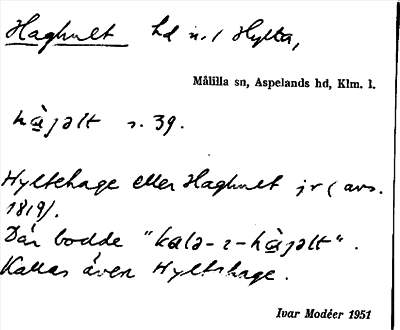 Haghult hd n. 1 Hylta,
Målilla sn, Aspelands hd, Klm. l.
hàjəlt s. 39.
Hyltehage eller Haghult jr (avs.
1819).
Där bodde "kalə-ɪ-hàjəlt".
Kallas även Hyltehage.
Ivar Modéer 1951